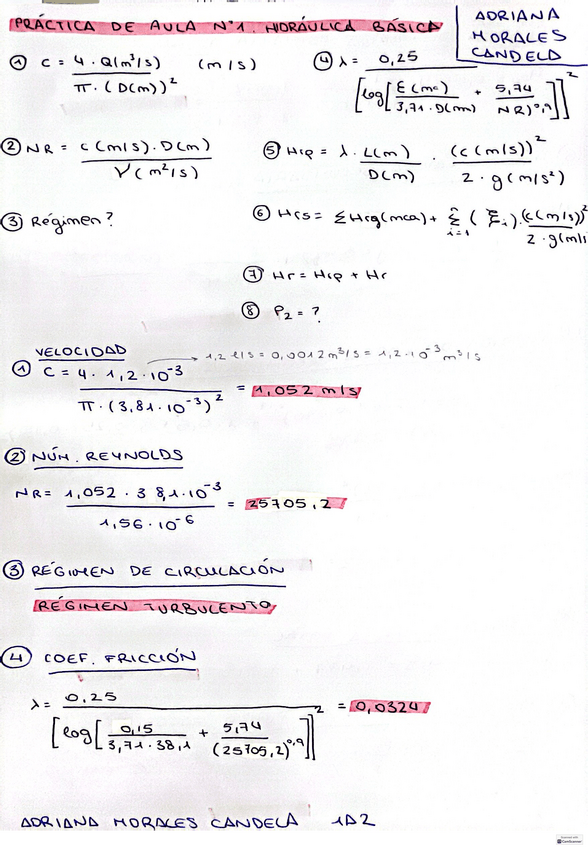 PRÁCTICA DE AULA Nº1. HIDRÁULICA BÁSICA
ADRIANA
MORALES
CANDELA
① C = 4 · Q(m³/s) / π · (D(m))² (m/s)
④ λ = 0,25 / [log[ε(mm) / 3,71 · D(mm) + 5,74 / NR)^0,9]]²
② NR = c(m/s) · D(m) / ν(m²/s)
⑤ Hrp = λ · L(m) / D(m) · (c(m/s))² / 2 · g(m/s²)
③ Régimen?
⑥ Hrs = ΣHrg(mca) + Σ i=1 n (ξi) · (c(m/s))² / 2 · g(m/s
⑦ Hr = Hrp + Hr
⑧ P₂ = ?
VELOCIDAD
① C = 4 · 1,2 · 10⁻³ / π · (3,81 · 10⁻³)² = 1,052 m/s
→ 1,2 l/s = 0,0012 m³/s = 1,2 · 10⁻³ m³/s
② NÚM. REYNOLDS
NR = 1,052 · 38,1 · 10⁻³ / 1,56 · 10⁻⁶ = 25705,2
③ RÉGIMEN DE CIRCULACIÓN
RÉGIMEN TURBULENTO
④ COEF. FRICCIÓN
λ = 0,25 / [log[0,15 / 3,71 · 38,1 + 5,74 / (25705,2)^0,9]]² = 0,0324
ADRIANA MORALES CANDELA 1A2
CamScanner